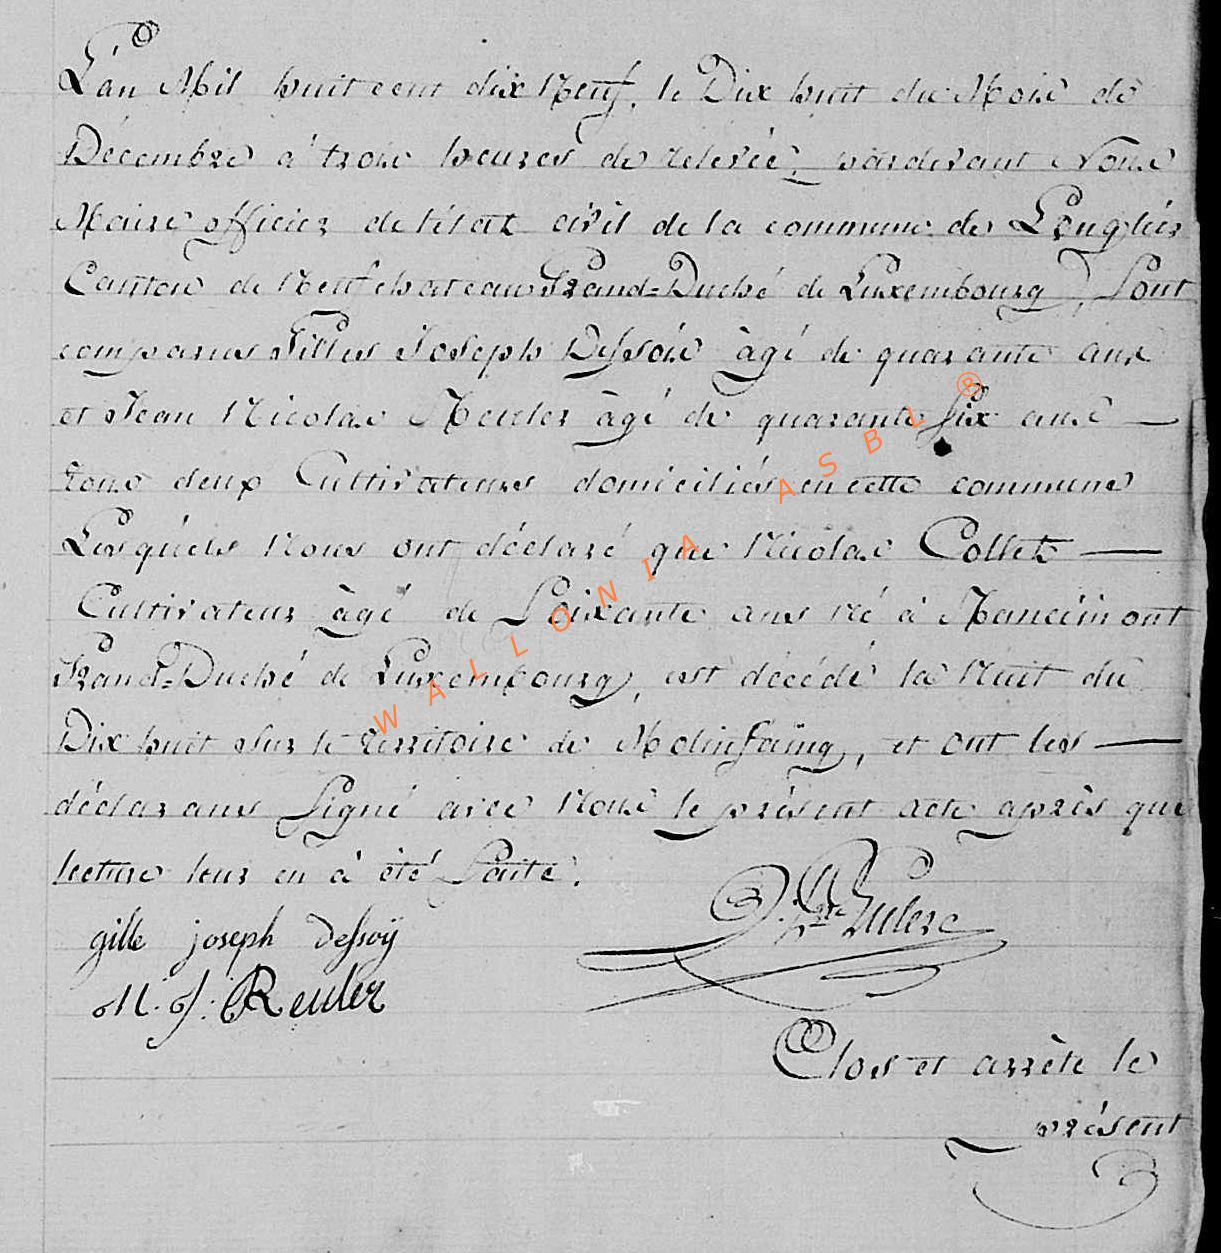 L'an Mil huit cent dix Neuf, le Dix huit du Mois de
Décembre à trois heures de relevée, pardevant Nous
Maire officier de l'état civil de la commune de Longlier
Canton de Neufchateau Grand-Duché de Luxembourg, Sont
comparus Gilles Joseph Dessoie âgé de quarante ans
et Jean Nicolas Reuler âgé de quarante six ans
tous deux Cultivateurs domiciliés en cette commune
Lesquels Nous ont déclaré que Nicolas Collet
Cultivateur âgé de Soixante ans né à Mancimont
Grand-Duché de Luxembourg, est décédé la Nuit du
Dix huit sur le territoire de Molinfaing, et ont les
déclarans Signé avec Nous le présent acte après que
lecture leur en à été Faite.
gille joseph dessoÿ
N. J. Reuler
Clos et arrête le
présent
WALLONIA ASBL ®